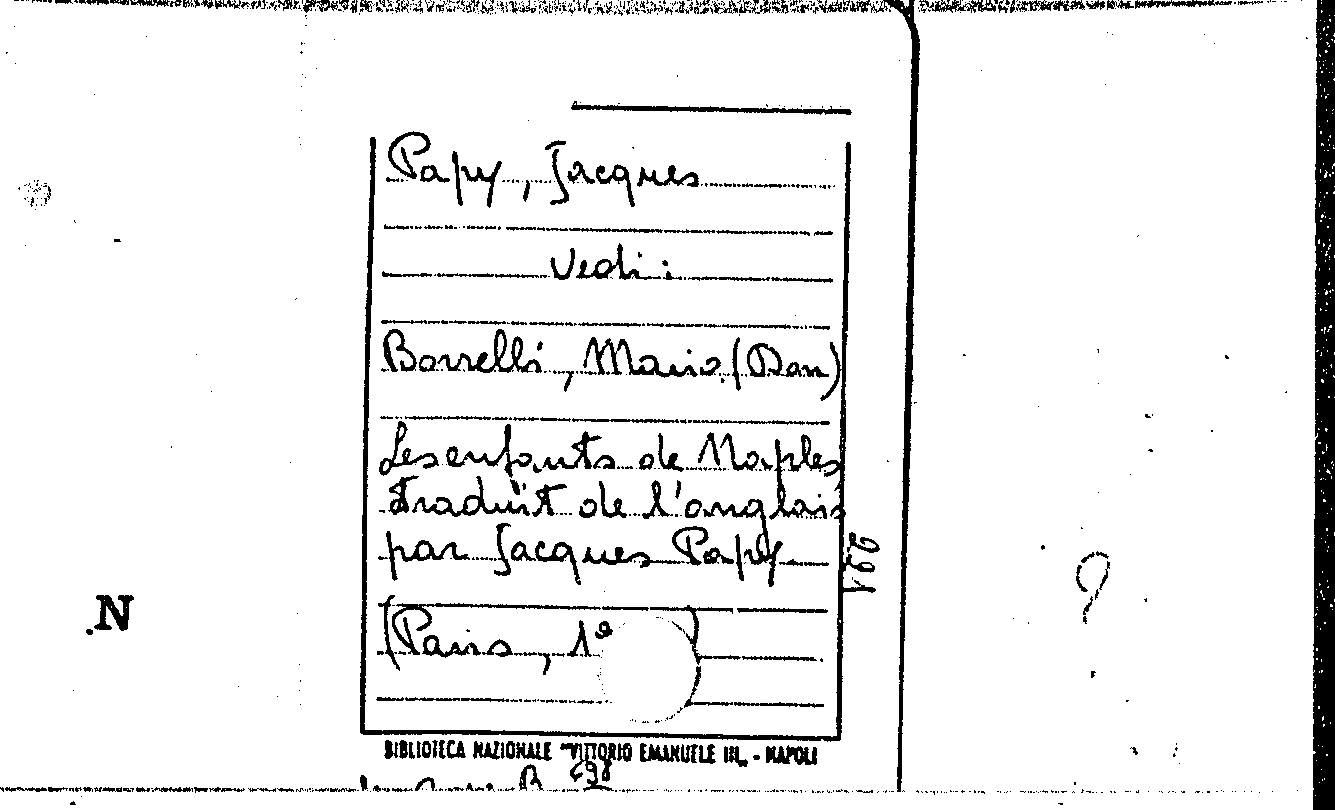 Papy, Jacques
Vedi:
Borrelli, Mario (Don)
Les enfants de Naples
traduit de l'anglais
par Jacques Papy
(Paris, )
BIBLIOTECA NAZIONALE "VITTORIO EMANUELE III„ - NAPOLI
N